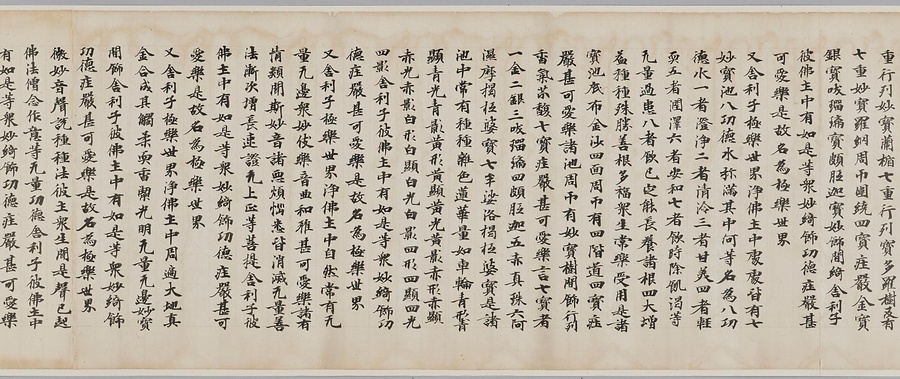 重行列妙寶蘭楯七重行列寶多羅樹及有
七重妙寶羅網周帀圍繞四寶莊嚴金寶
銀寶吠瑠璃寶頗胝迦寶妙飾間綺舍利子
彼佛土中有如是等衆妙綺飾功德莊嚴甚
可愛樂是故名為極樂世界
又舍利子極樂世界淨佛土中處處皆有七
妙寶池八功德水弥滿其中何等名為八功
德水一者澄淨二者清泠三者甘美四者輕
耎五者潤澤六者安和七者飲時除飢渴等
无量過患八者飲已定能長養諸根四大增
益種種殊勝善根多福衆生常樂受用是諸
寶池底布金沙四面周帀有四階道四寶莊
嚴甚可愛樂諸池周帀有妙寶樹間飾行列
香氣芬馥七寶莊嚴甚可愛樂言七寶者
一金二銀三吠瑠璃四頗胝迦五赤真珠六阿
濕摩揭拉婆寶七牟娑洛揭拉婆寶是諸
池中常有種種雜色蓮華量如車輪青形青
顯青光青影黃形黃顯黃光黃影赤形赤顯
赤光赤影白形白顯白光白影四形四顯四光
四影舍利子彼佛土中有如是等衆妙綺飾功
德莊嚴甚可愛樂是故名為極樂世界
又舍利子極樂世界淨佛土中自然常有无
量无邊衆妙伎樂音曲和雅甚可愛樂諸有
情類聞斯妙音諸惡煩惱悉皆消滅无量善
法漸次增長速證无上正等菩提舍利子彼
佛土中有如是等衆妙綺飾功德莊嚴甚可
愛樂是故名為極樂世界
又舍利子極樂世界淨佛土中周遍大地真
金合成其觸柔耎香潔光明无量无邊妙寶
間飾舍利子彼佛土中有如是等衆妙綺飾
功德莊嚴甚可愛樂是故名為極樂世界
微妙音聲說種種法彼土衆生聞是聲已起
佛法僧念作意等无量功德舍利子彼佛土中
有如是等衆妙綺飾功德莊嚴甚可愛樂